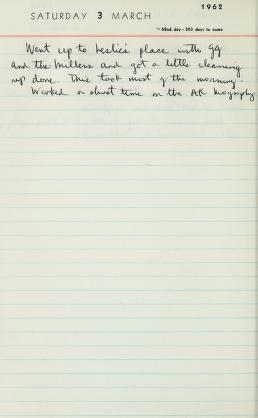 1962
SATURDAY 3 MARCH
62nd day - 303 days to come
Went up to Leslie's place with GG
and the Millers and got a little cleaning
up done. This took most of the morning.
Worked a short time on the AK biography